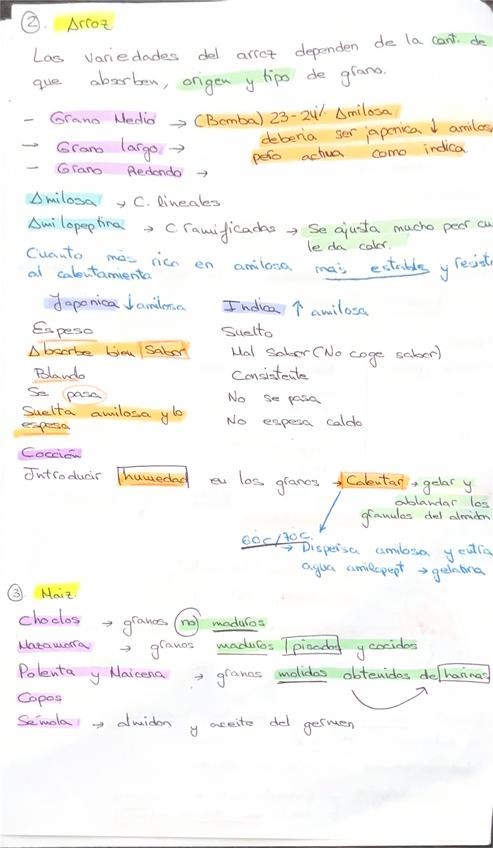 ② Arroz
Las variedades del arroz dependen de la cant. de
que absorben, origen y tipo de grano.
- Grano Medio → (Bomba) 23-24% Amilosa
debería ser japonica ↓ amilos
→ Grano largo →
pero actua como indica
- Grano Redondo →
Amilosa → C. lineales
Amilopeptina → C. ramificadas → Se ajusta mucho peor cu
le da calor.
Cuanto más rico en amilosa más estable y resist
al calentamiento
Japonica ↓ amilosa Indica ↑ amilosa
Espeso Suelto
Absorbe bien Sabor Mal Sabor (No coge sabor)
Blando Consistente
Se pasa No se pasa
Suelta amilosa y lo No espesa caldo
espesa
Cocción
Introducir humedad en los granos → Calentar → gelar y
ablandar los
granulos del almidon
60c/70c.
→ Dispersa amilosa y entra
agua amilopept → gelatina
③ Maiz.
Choclos → granos no maduros
Mazamorra → granos maduros pisados y cocidos
Polenta y Maicena → granos molidos obtenidos de harinas
Copos
Sémola → almidon y aceite del germen